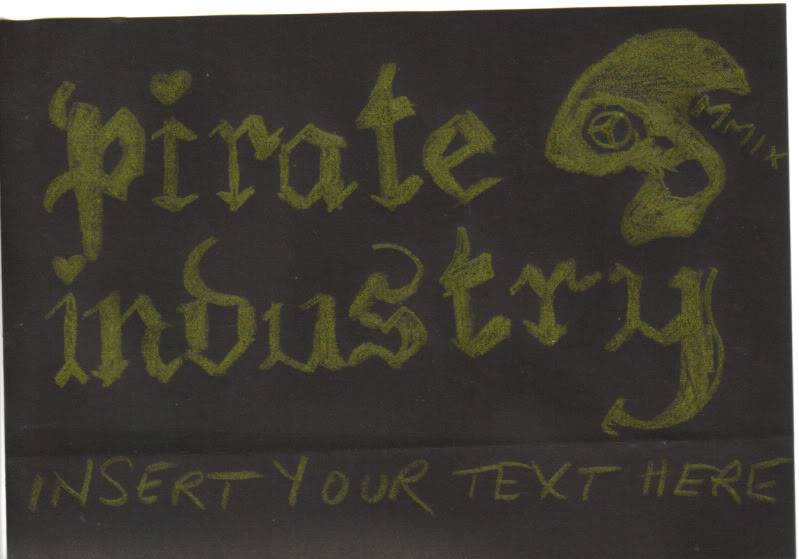 pirate
MMIX
industry
INSERT YOUR TEXT HERE